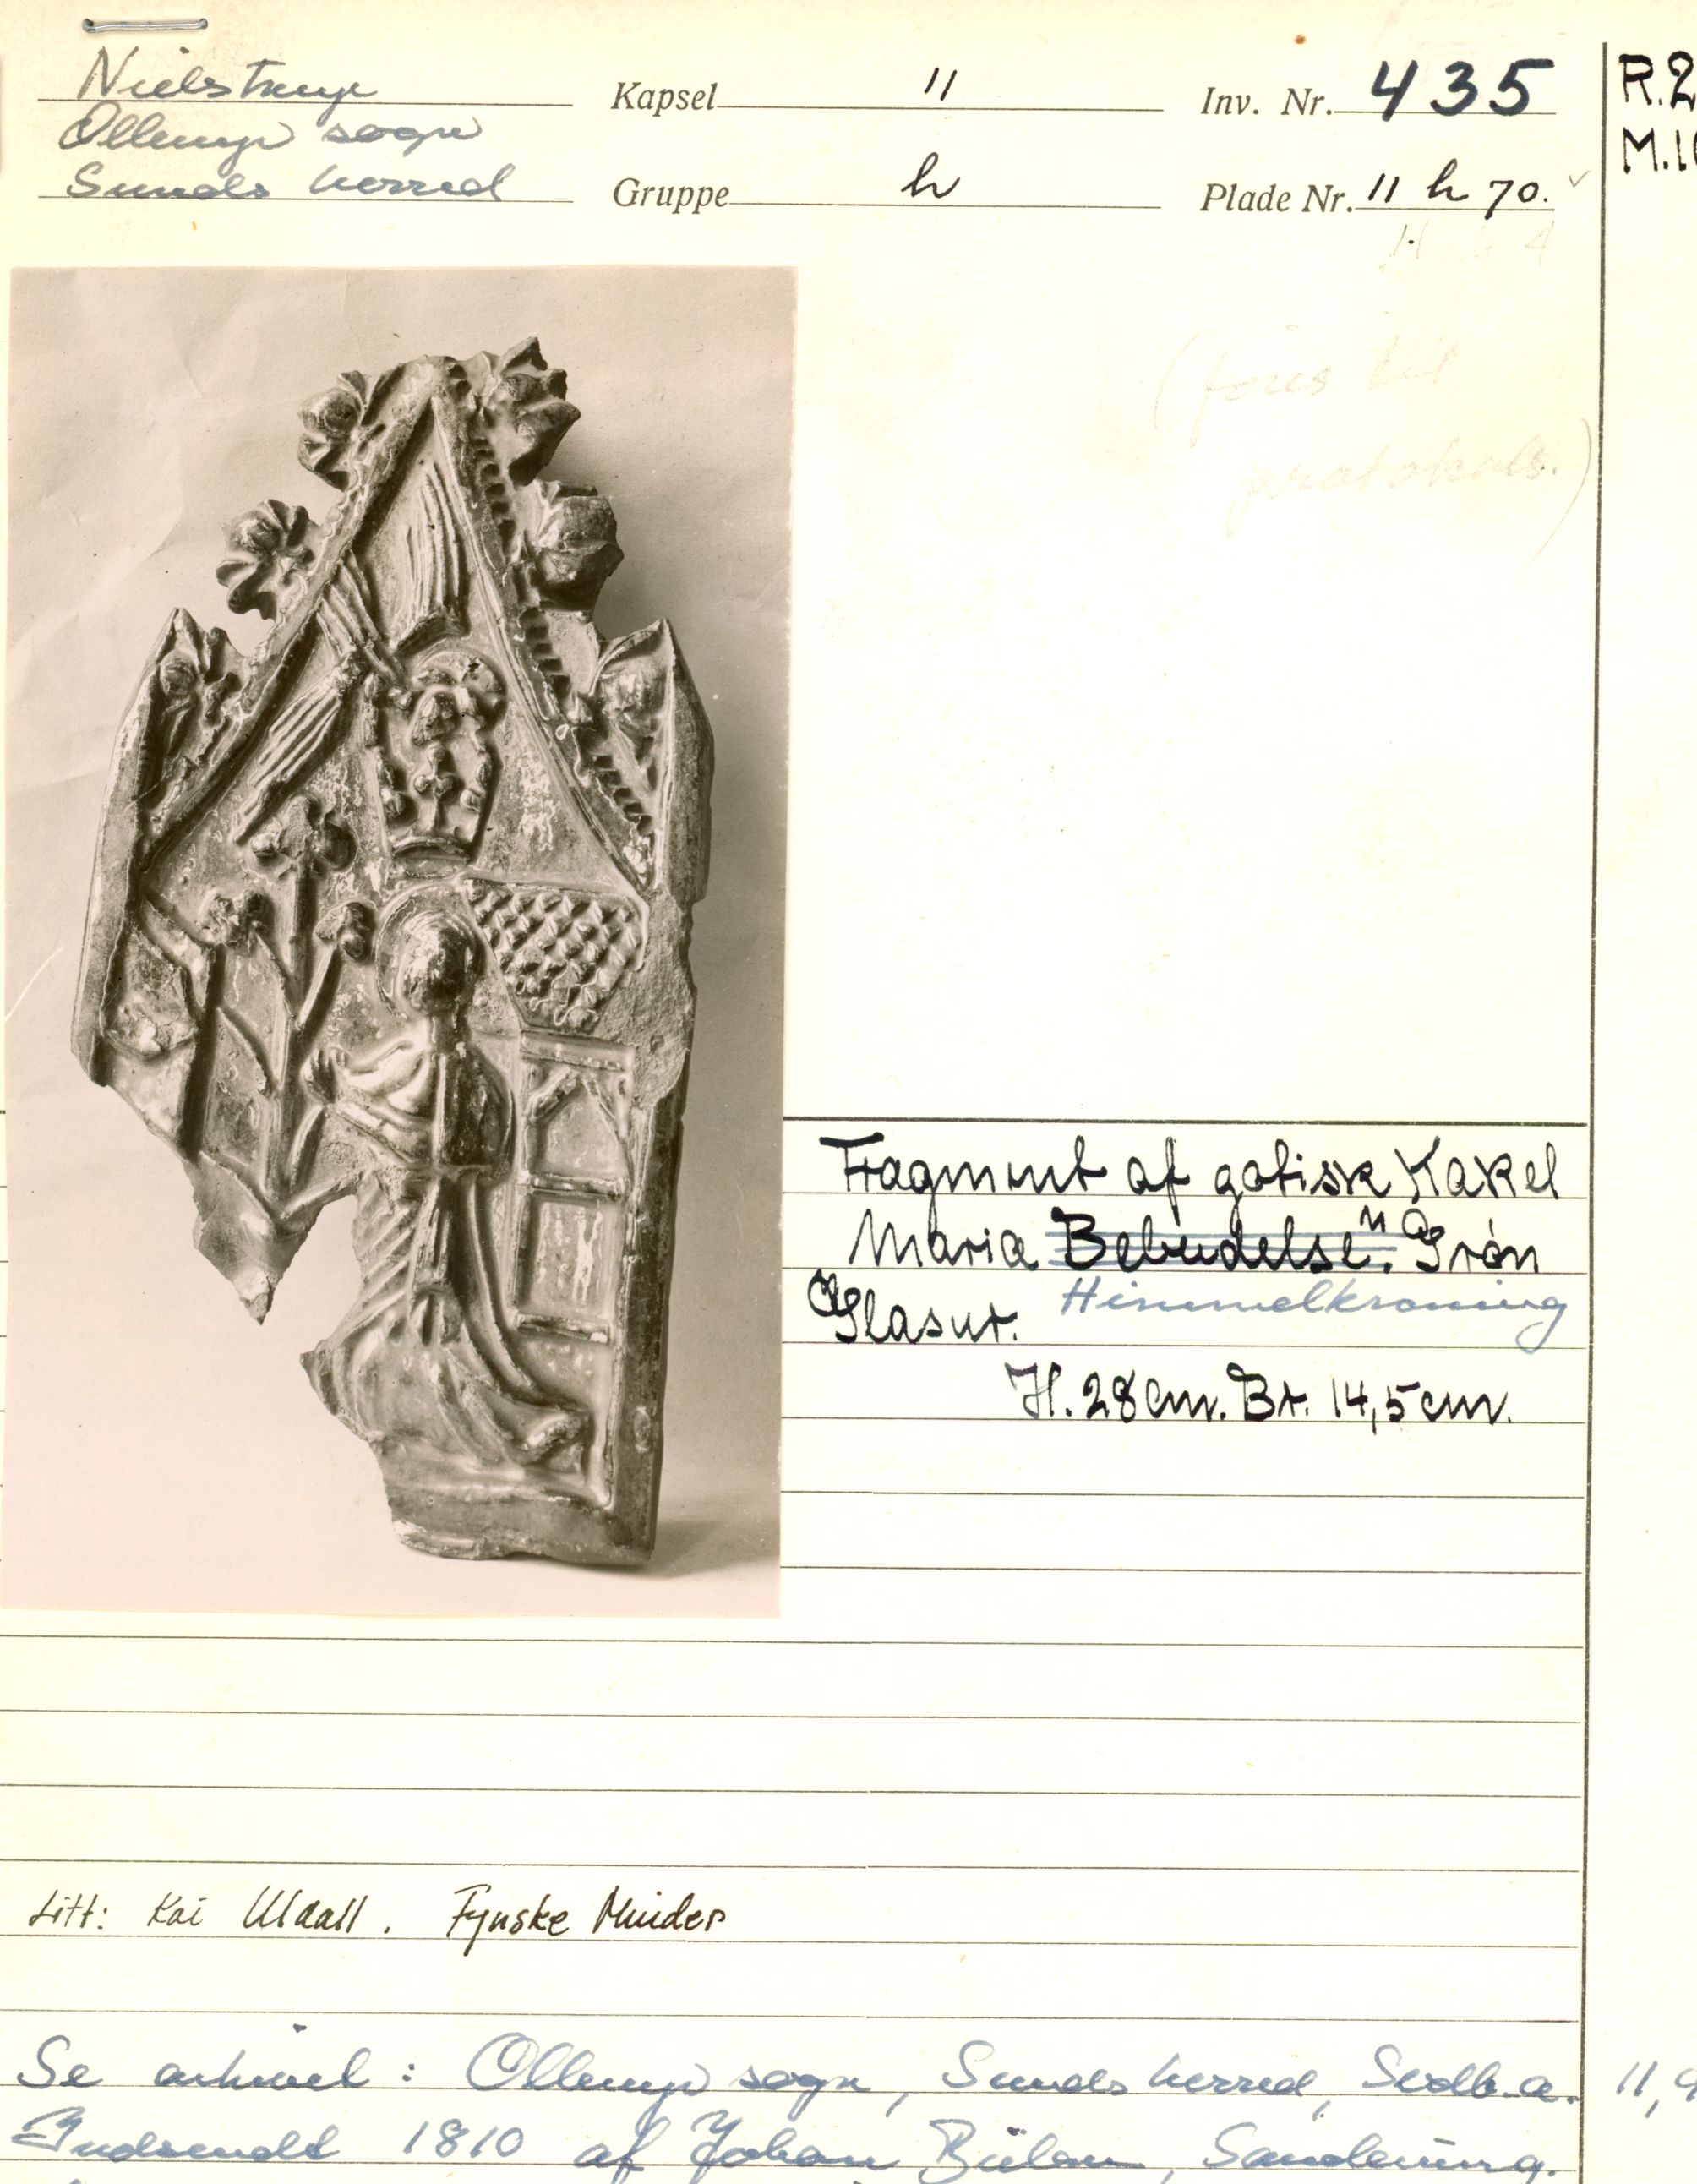 Nielstrup
Ollerup sogn
Sunds herred
Kapsel 11
Gruppe h
Inv. Nr. 435
Plade Nr. 11 h 70.
R.2
M.1
(føres til
protokols.)
Fragment af gotisk Kakel
Maria Bebudelse. Grøn
Glasur. Himmelkroning
H. 28 cm. Br. 14,5 cm.
Litt: Kai Uldall. Fynske Minder
Se arkivet: Ollerup sogn, Sunds herred, Svdb. a. 11,
Indsendt 1810 af Johan Bülow, Sanderumg.